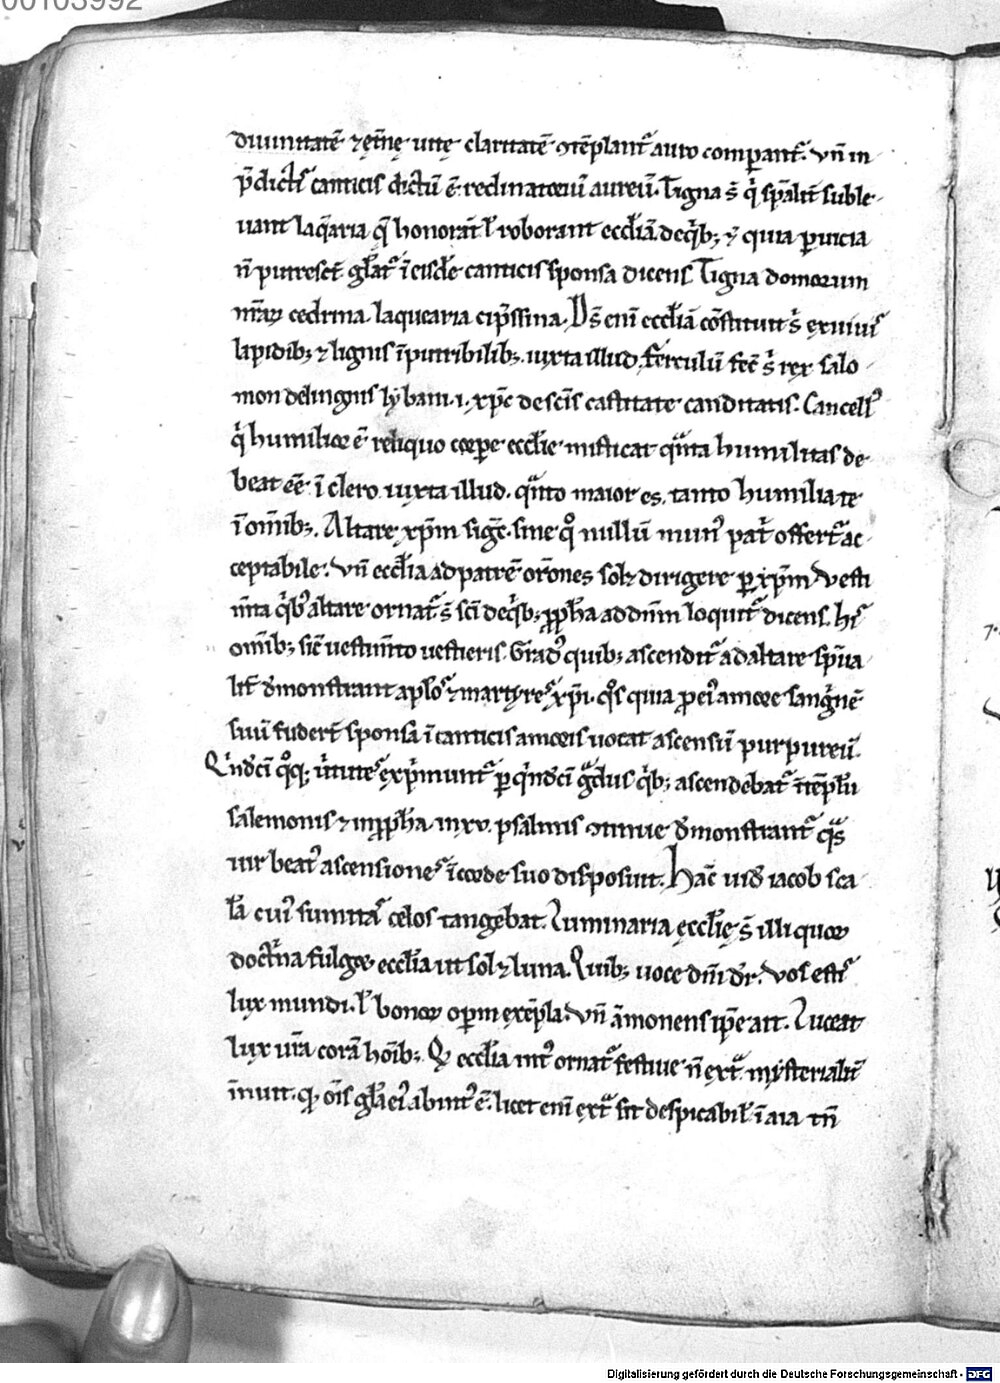 00103992
diuinitatē ⁊ ęt̄nę uitę claritatē ↄtēplant᷑ auro comparant᷑. vn̄ in
p̄dictıs canticis dictū ē. reclinatoriū aureū. Tigna s̄ qͥ sp̄alit̄ suble
uant laq̄aria q̄ honorāt ł roborant eccłiā. de q̄ib; ⁊ quia ꝑ uicia
n̄ putresct̄ gl̄at᷑ ī eisdē canticis sponsa dicens Tigna domorum
nr̄aꝝ cedrina. laquearia cip̄ssina. D̄s enī eccłiā cōstituit s̄ ex uiuis
lapidib; ⁊ lignis īputribilib;. iuxta illud. ferculū fec̄ s̄ rex salo
mon de lingnis lybani .i. xp̄c de sc̄is castitate canditatis. Cancell᷒
q̄ humilior ē reliquo corꝑe eccłie mīsticat qͣnta humilitas de
beat eē ī clero. iuxta illud. qͣnto maior es. tanto humilia te
ī om̄ib;. Altare xp̄m sigc̄. sine qͦ nullū mun᷒ patͥ offert᷑ ac
ceptabile. vn̄ eccłia ad patrē or̄ones solꝫ dirigere ꝑ xp̄m. Vesti
m̄ta qͥb᷒ altare ornat᷑ s̄ sc̄i de qͥb; ꝓph̄a ad dn̄m loquit᷑ dicens. his
om̄ib; sic̄ uestim̄to uestieris. Grad᷒ quib; ascendit᷑ ad altare sp̄ua
lit̄ demonstrant apło᷒ ⁊ martyres xp̄i. qͦs quia ꝓ ei᷒ amore sangͥnē
suū fuder̄t sponsa ī canticis amoris uocat ascensū purpureū.
Qͥndeci qͦq; uͥtutes exp̄munt᷑ ꝑ qͥndeci gͣdus qͥb; ascendebat᷑ ī tēplū
salemonis ⁊ in ꝓph̄a. in xv. psalmis ↄtinue demonstrant᷑ qͣs
uir beat᷒ ascensiones ī corde suo disposuit. Hāc uidͥ iacob sca
lā cui᷒ sumitas celos tangebat. Luminaria ęccłię s̄ illi quoꝝ
doctͥna fulget eccłia ut sol ⁊ luna. Quib; uoce dn̄i dr̄. vos estis
lux mundi. ł bonoꝝ operū exēpla. vn̄ āmonens ip̄e ait. Luceat
lux ur̄a corā hoīb;. Qd eccłia int᷒ ornat᷑ festiue n̄ extͣ. mysterialit̄
īnuit. qd oīs gl̄a ei᷒ ab int᷒ ē. licet enī extͣ sit despicabił ī aīa tn̄
Digitalisierung gefördert durch die Deutsche Forschungsgemeinschaft - DFG